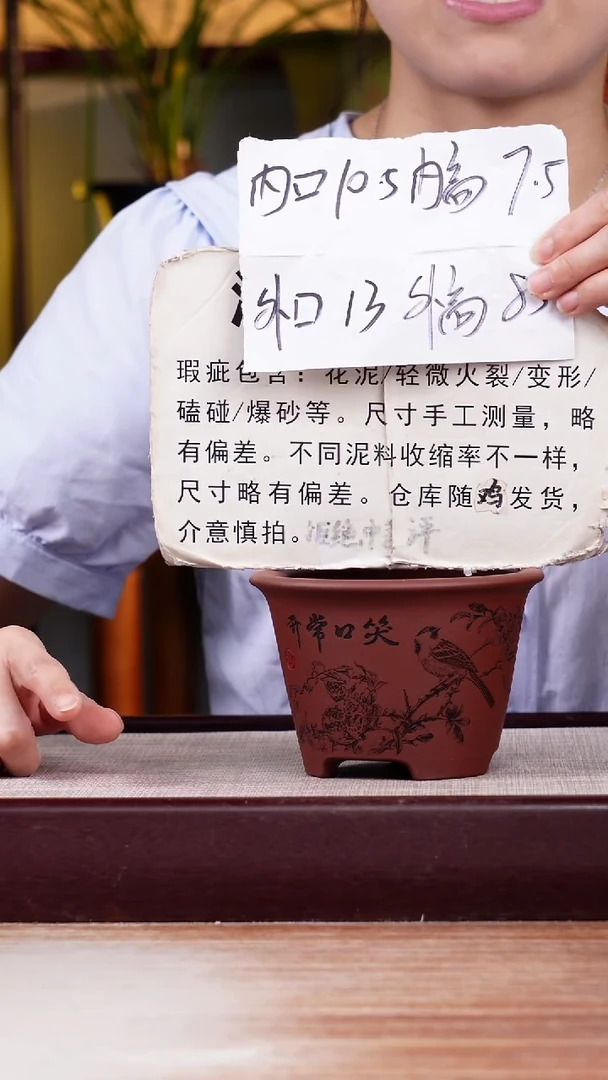 内口10.5内高7.5
外口13外高8.5
瑕疵包含：花泥/轻微火裂/变形/
磕碰/爆砂等。尺寸手工测量，略
有偏差。不同泥料收缩率不一样，
尺寸略有偏差。仓库随鸡发货，
介意慎拍。
笑口常开